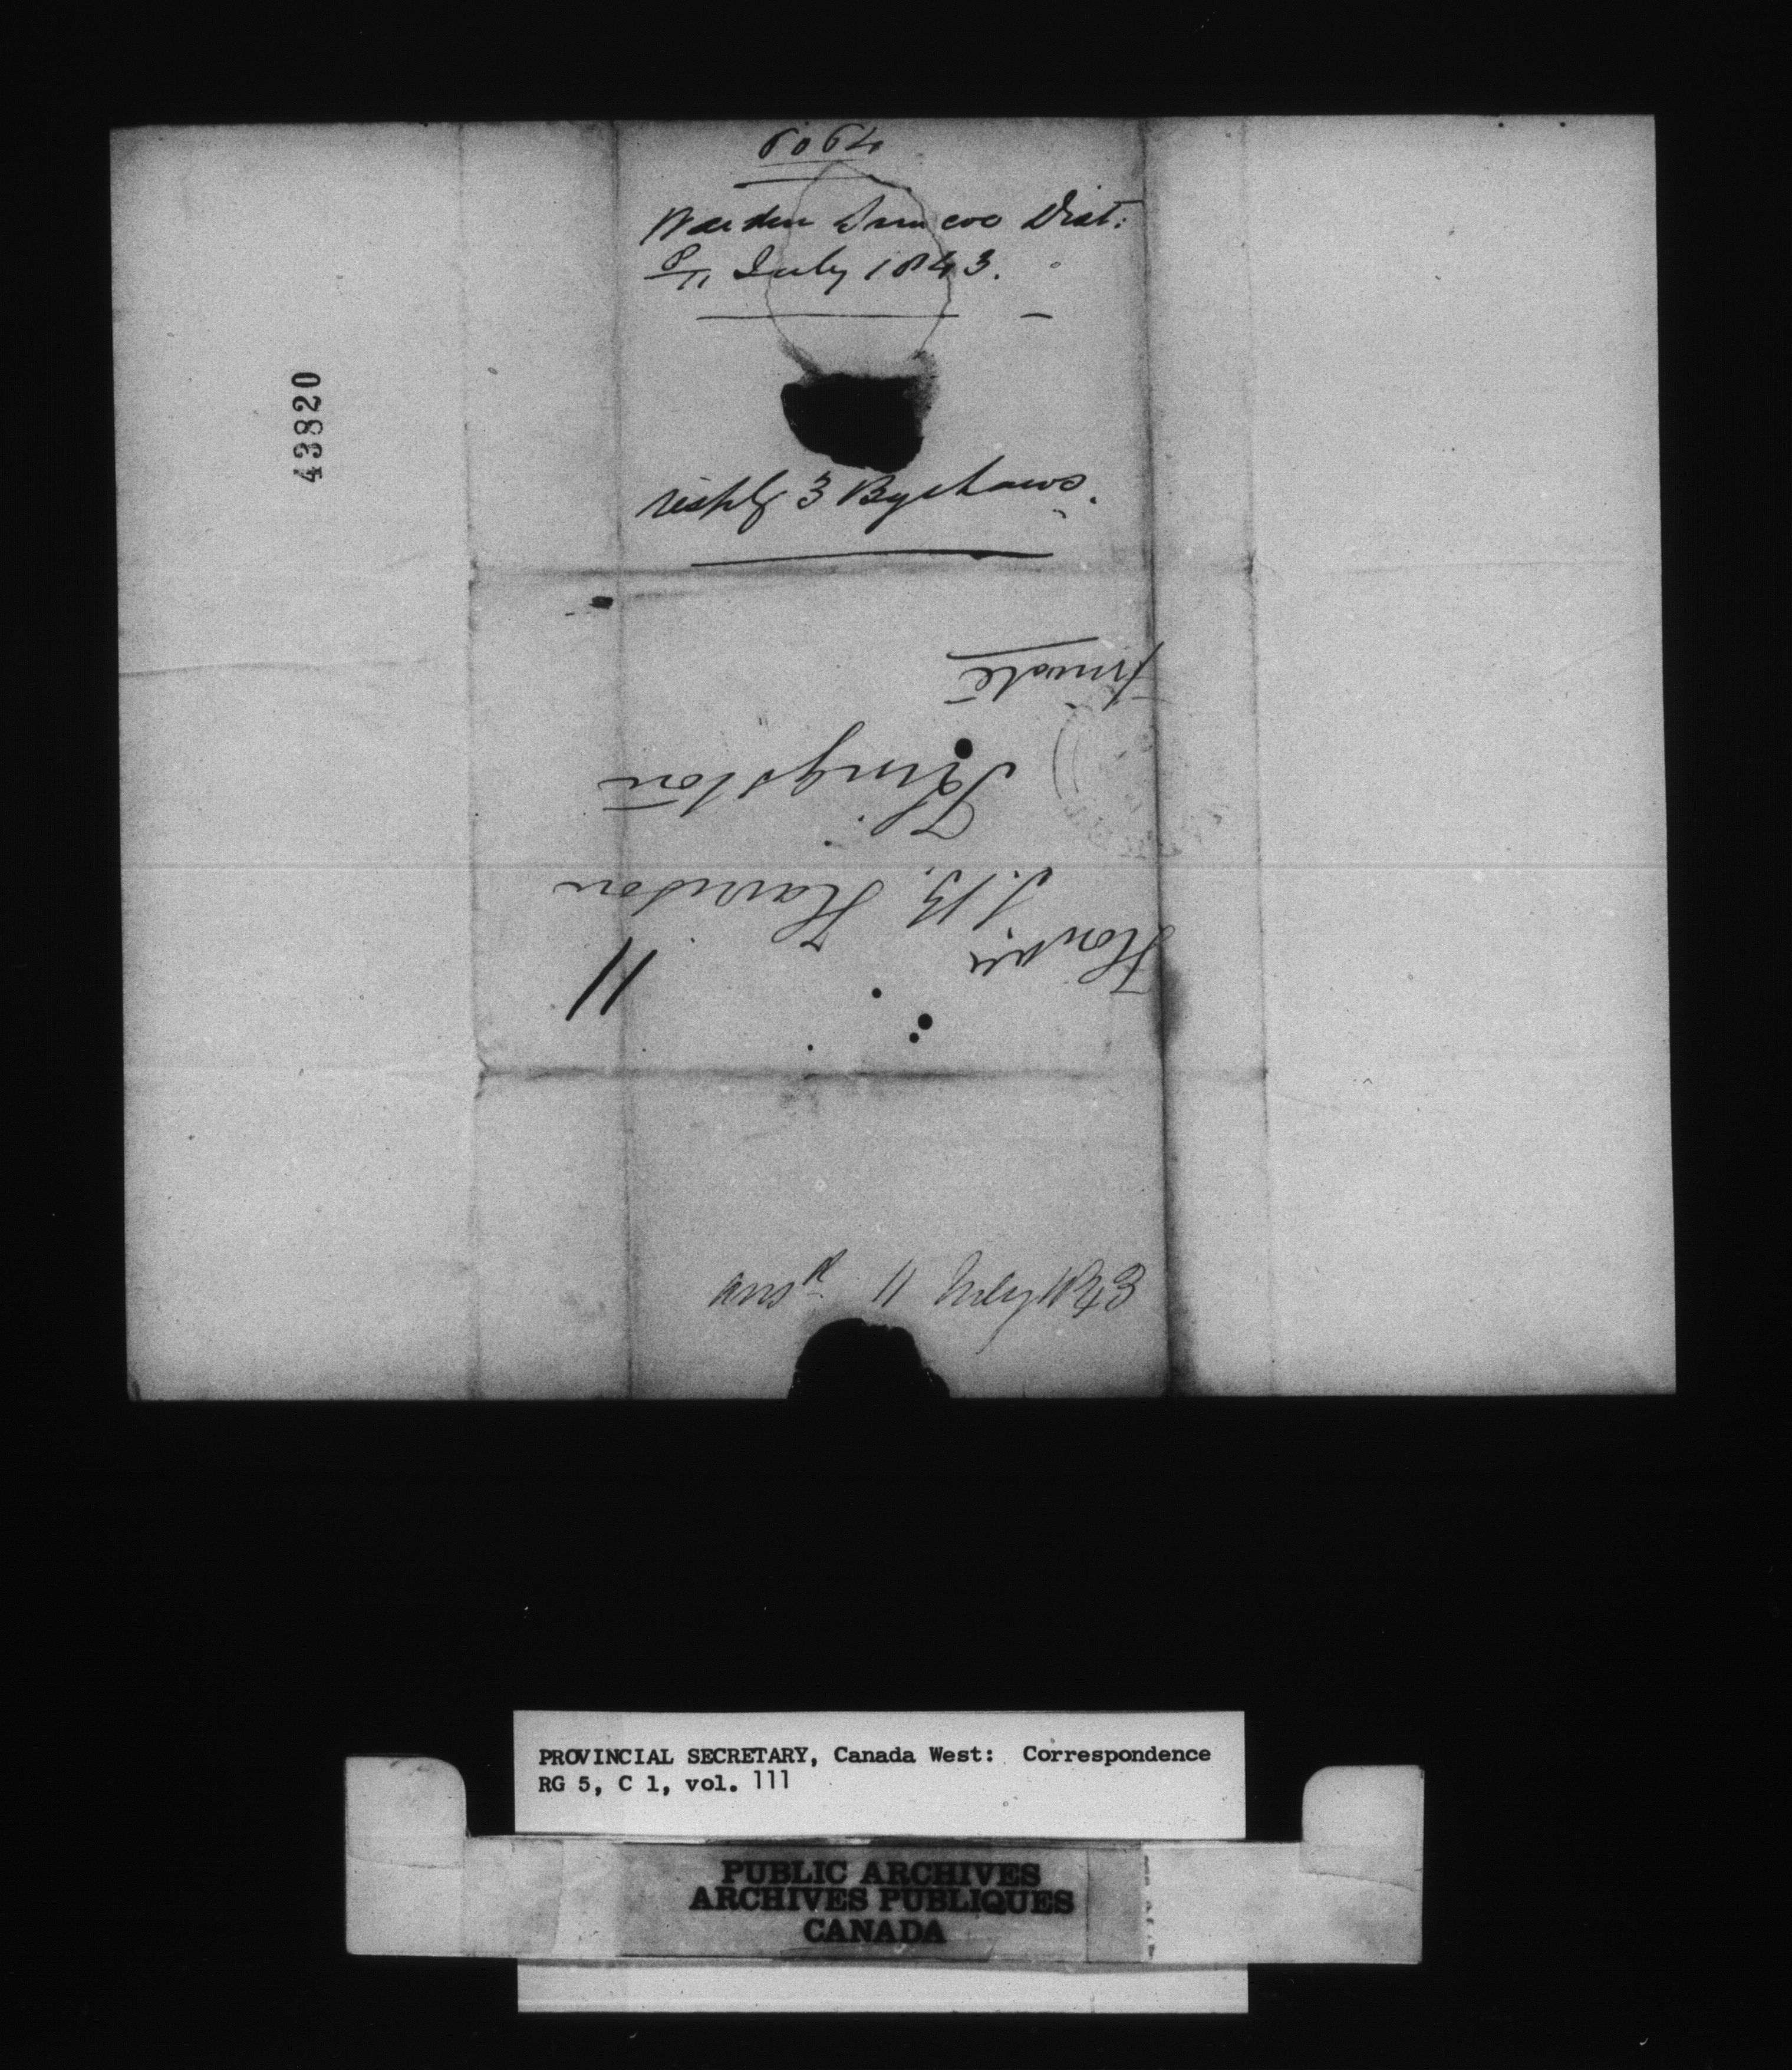 6064
Warden Simcoe Dist:
8/11 July 1843.
respg 3 Bye Laws.
43820
Private
Kingston
S. B. Harrison
Honble
11
ansd 11 July 1843
PROVINCIAL SECRETARY, Canada West: Correspondence
RG 5, C 1, vol. 111
PUBLIC ARCHIVES
ARCHIVES PUBLIQUES
CANADA